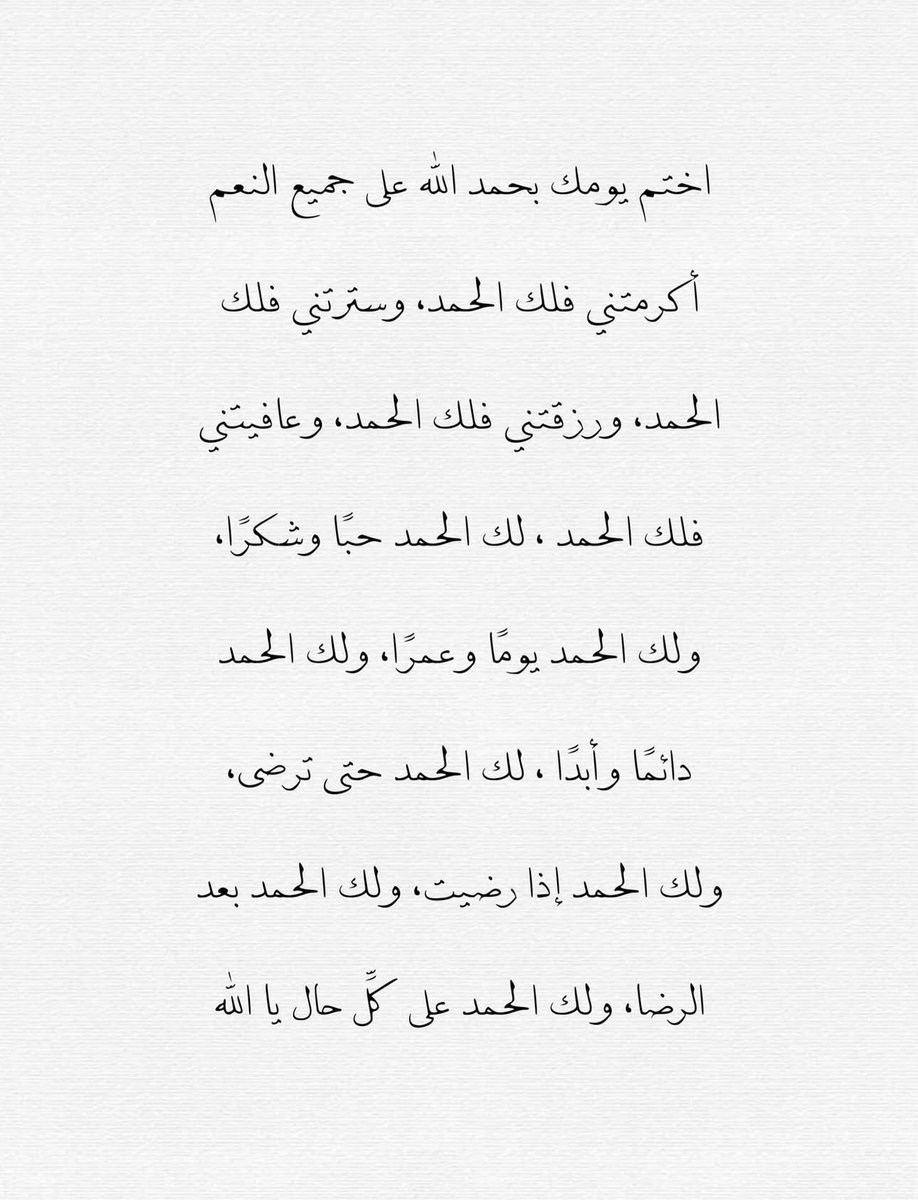 اختم يومك بحمد الله على جميع النعم
أكرمتني فلك الحمد، وسترتني فلك
الحمد، ورزقتني فلك الحمد، وعافيتني
فلك الحمد ، لك الحمد حبًا وشكرًا،
ولك الحمد يومًا وعمرًا، ولك الحمد
دائمًا وأبدًا ، لك الحمد حتى ترضى،
ولك الحمد إذا رضيت، ولك الحمد بعد
الرضا، ولك الحمد على كلِّ حال يا الله